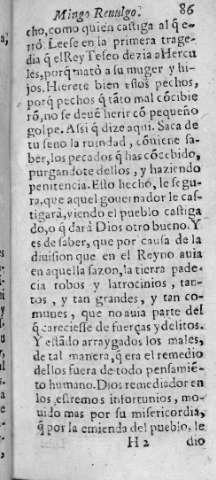 Mingo Reuulgo. 86
cho, como quien castiga al q̃ e-
rró. Leese en la primera trage-
dia q̃ el Rey Teseo dezia a Hercu
les, porq̃ mató a su muger y hi-
jos. Hierete bien estos pechos,
porq̃ pechos q̃ tãto mal cõcibie
rõ, no se deuẽ herir cõ pequeño
golpe. Assi q̃ dize aqui. Saca de
tu seno la ruindad, cõuiene sa-
ber, los pecados q̃ has cõcebido,
purgandote dellos, y haziendo
penitencia. Esto hecho, le segu-
ra, que aquel gouernador le cas-
tigará, viendo el pueblo castiga
do, o q̃ dará Dios otro bueno. Y
es de saber, que por causa de la
diuision que en el Reyno auia
en aquella sazon, la tierra pade-
cia robos y latrocinios, tan-
tos, y tan grandes, y tan co-
munes, que no auia parte del
q̃ careciesse de fuerças y delitos.
Y estãdo arraygados los males,
de tal manera, q̃ era el remedio
dellos fuera de todo pensamiẽ-
to humano. Dios remediador en
los estremos infortunios, mo-
uido mas por su misericordia,
q̃ por la emienda del pueblo, le
H 2 dio